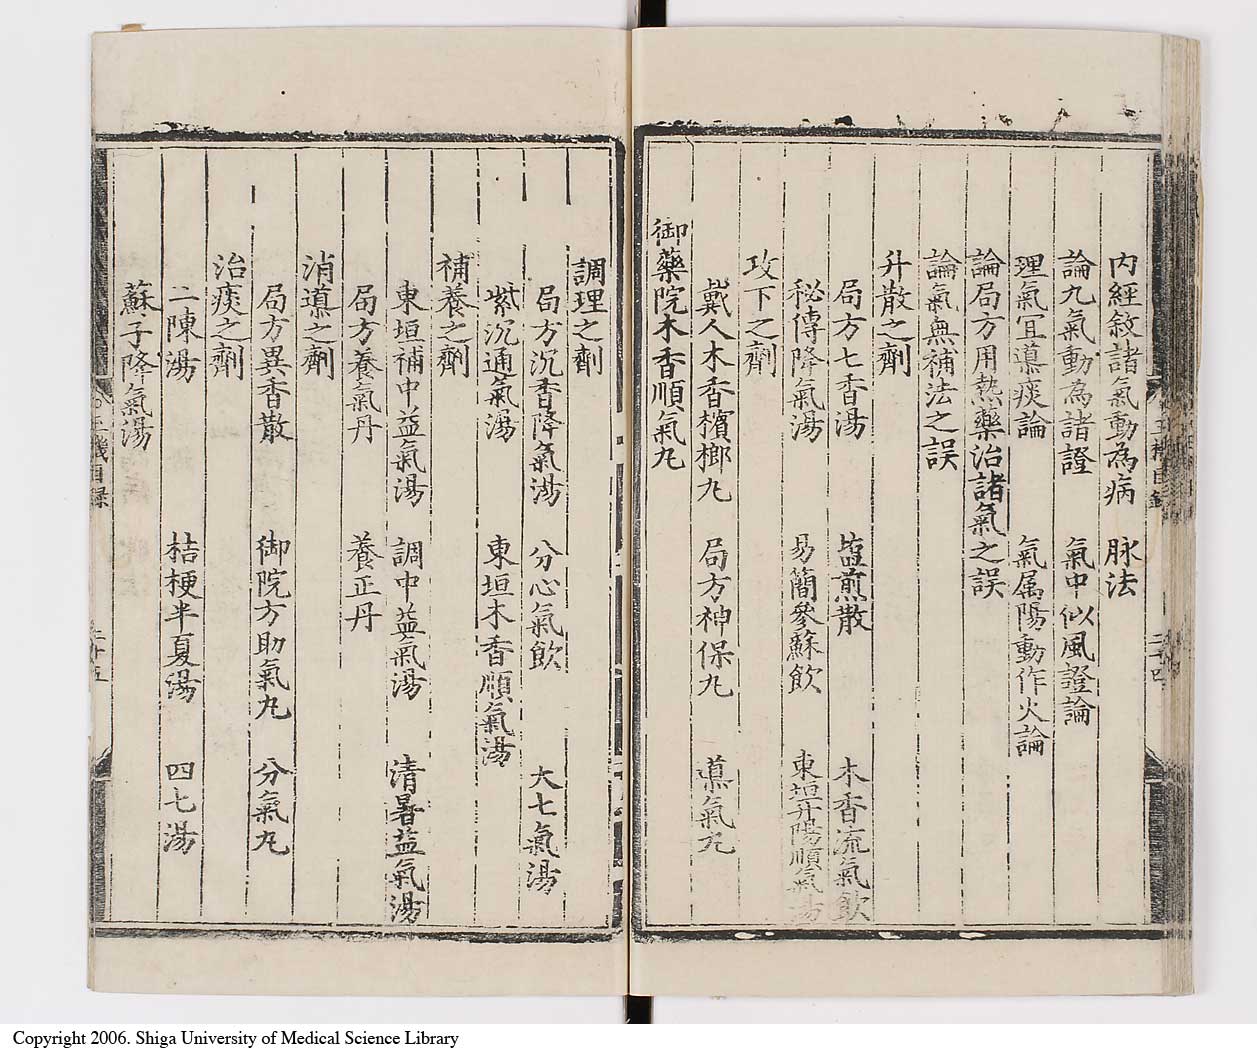 內經敘諸氣動為病 脉法
論九氣動為諸證 氣中似風證論
理氣宜導痰論 氣属陽動作火論
論局方用熱藥治諸氣之誤
論氣無補法之誤
升散之劑
局方七香湯 塩煎散 木香流氣飲
秘傳降氣湯 易簡參蘇飲 東垣升陽順氣湯
攻下之劑
戴人木香檳榔丸 局方神保丸 導氣丸
御藥院木香順氣丸
調理之劑
局方沉香降氣湯 分心氣飲 大七氣湯
紫沉通氣湯 東垣木香順氣湯
補養之劑
東垣補中益氣湯 調中益氣湯 清暑益氣湯
局方養氣丹 養正丹
消導之劑
局方異香散 御院方助氣丸 分氣丸
治痰之劑
二陳湯 桔梗半夏湯 四七湯
蘇子降氣湯
Copyright 2006. Shiga University of Medical Science Library